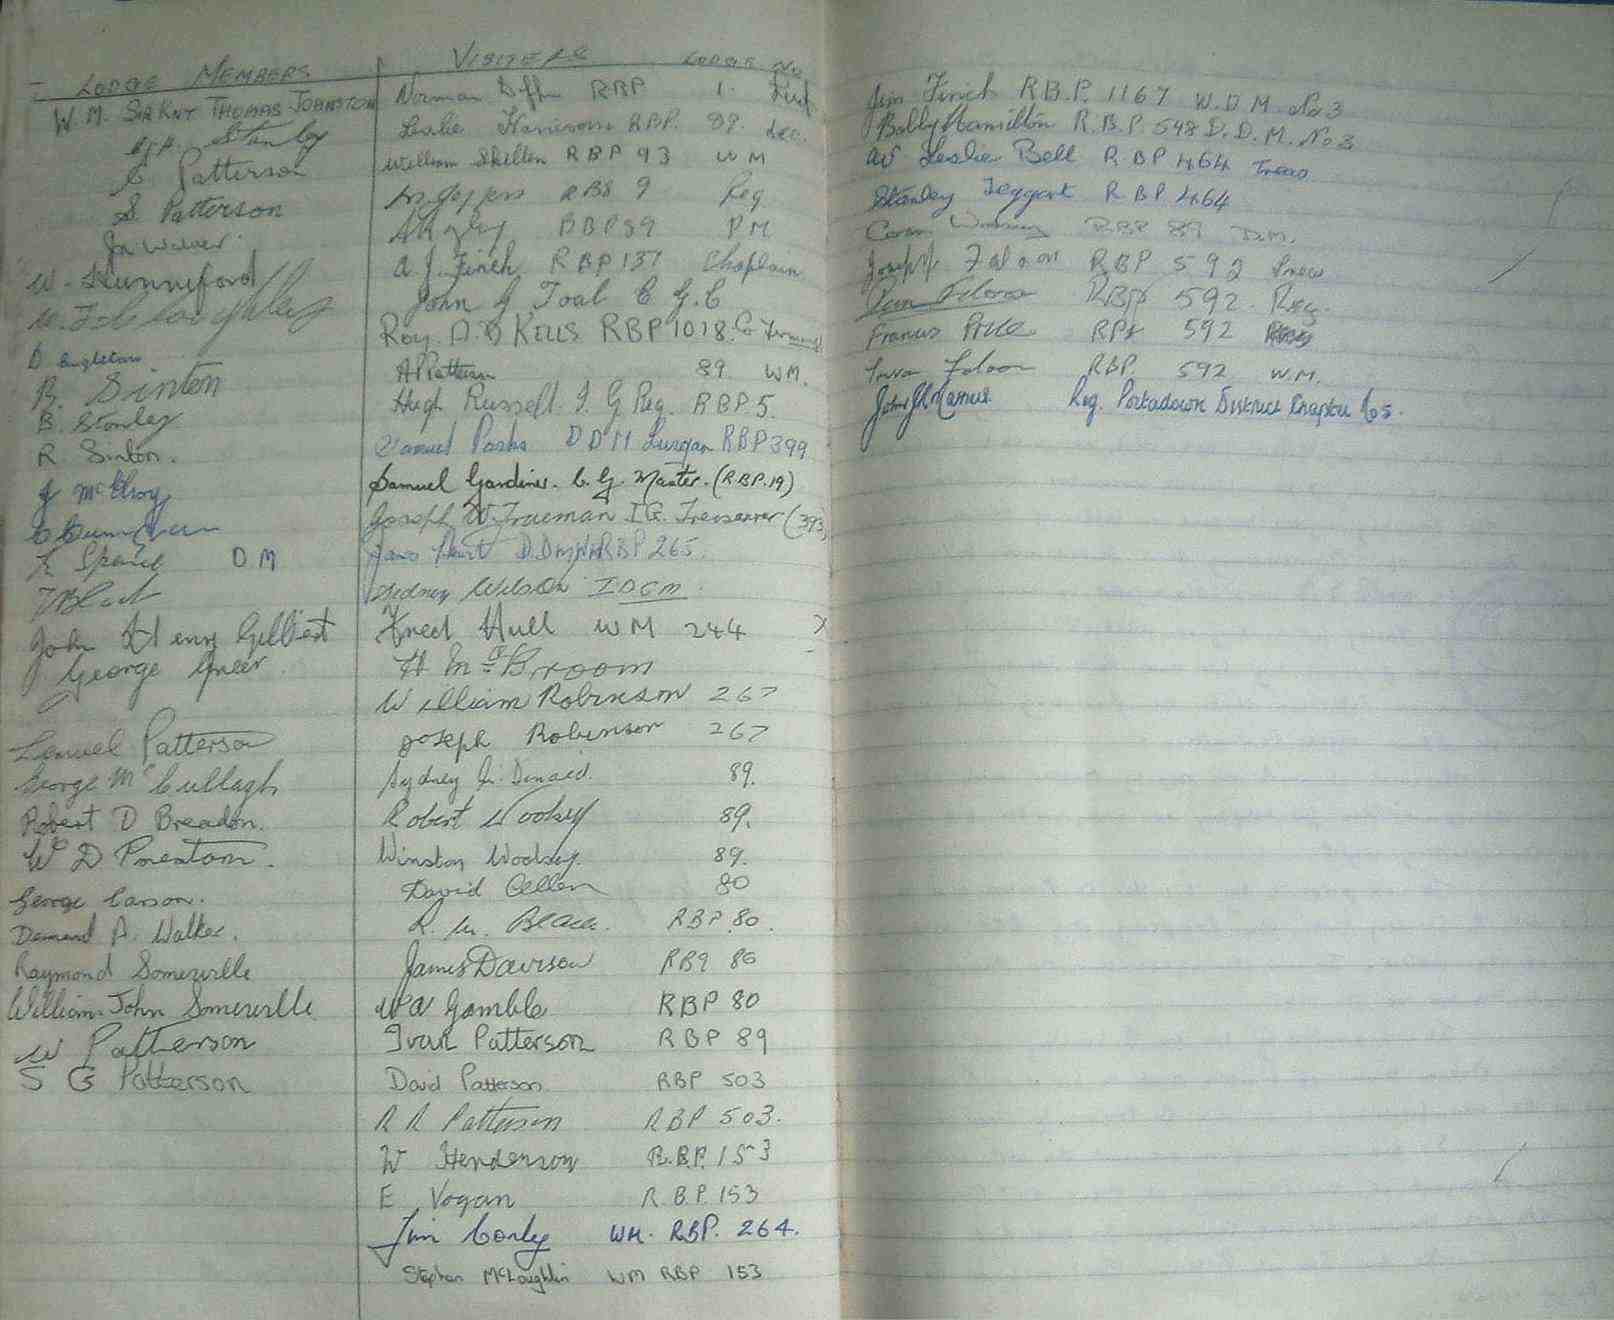 LODGE MEMBERS
W.M. SIR KNT THOMAS JOHNSTON
Stanley
Patterson
S. Patterson
W. Hunniford
D Engleton
R. Sinton
B. Stanley
R Sinton.
J McElroy
Spence D M
T Black
John Henry Gilbert
George Greer.
Lemuel Patterson
George McCullagh
Robert D Breadon.
W D Preston.
George Carson.
Desmond A. Walker.
Raymond Somerville
William John Somerville
W Patterson
S G Patterson
VISITERS LODGE No
Norman RBP 1.
Leslie Harrison RBP. 89. Lec.
William Skelton RBP 93 W M
9 Reg
P M
A. J. Finch RBP 137 Chaplain
John G Toal C G. C
Roy. A. D KELLS RBP 1018. Co
A Patterson 89 WM.
Hugh Russell. I. G Reg. RBP 5.
Samuel Parks D D M Lurgan RBP 399
Samuel Gardiner. C. G. Master. (RBP. 19)
Joseph W. Trueman I G. Treaserer (393)
James RBP 265.
Sidney Wilson I D G M.
Fred Hull WM 244
H McBroom
William Robinson 267
Joseph Robinson 267
Sydney 89.
Robert Woolsey 89.
Winston Woolsey. 89.
David Cullen 80
R. RBP. 80.
James Davison RBP 80
W A Gamble RBP 80
Ivan Patterson RBP 89
David Patterson RBP 503
R R Patterson RBP 503.
W Henderson R.B.P. 153
E Vogan R.B.P. 153
Jim Corley WM. RBP. 264.
Stephen McLoughlin WM RBP 153
Jim Finch R.B.P. 1167 W. D M. No 3
Bobby Hamilton R.B.P. 548 D. D. M. No 3
Leslie Bell R BP 464 Treas.
Stanley Teggart R BP 464
RBP 89 D.M.
Joseph Faloon RBP 592
RBP 592. Reg.
Francis 592
Faloon RBP. 592 W.M.
John McManus Reg. Portadown District Chapter No 5.